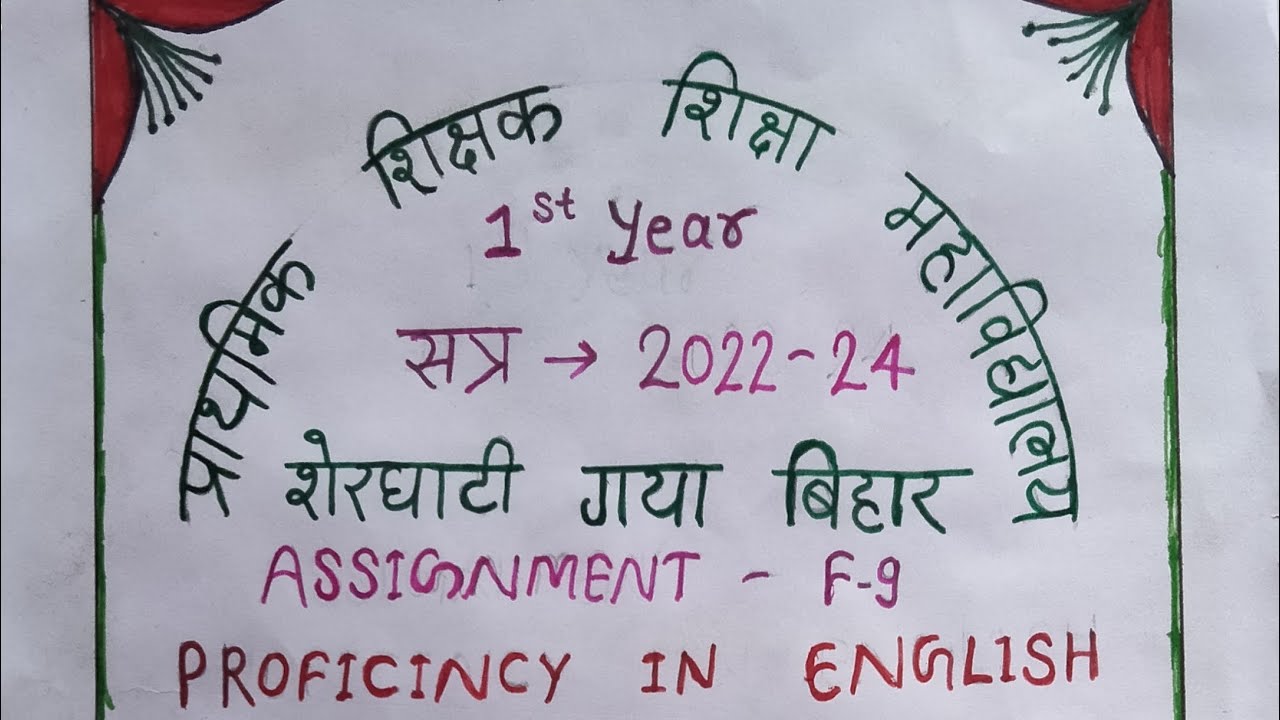 प्राथमिक शिक्षक शिक्षा महाविद्यालय
1st Year
सत्र → 2022-24
शेरघाटी गया बिहार
ASSIGNMENT - F-9
PROFICINCY IN ENGLISH